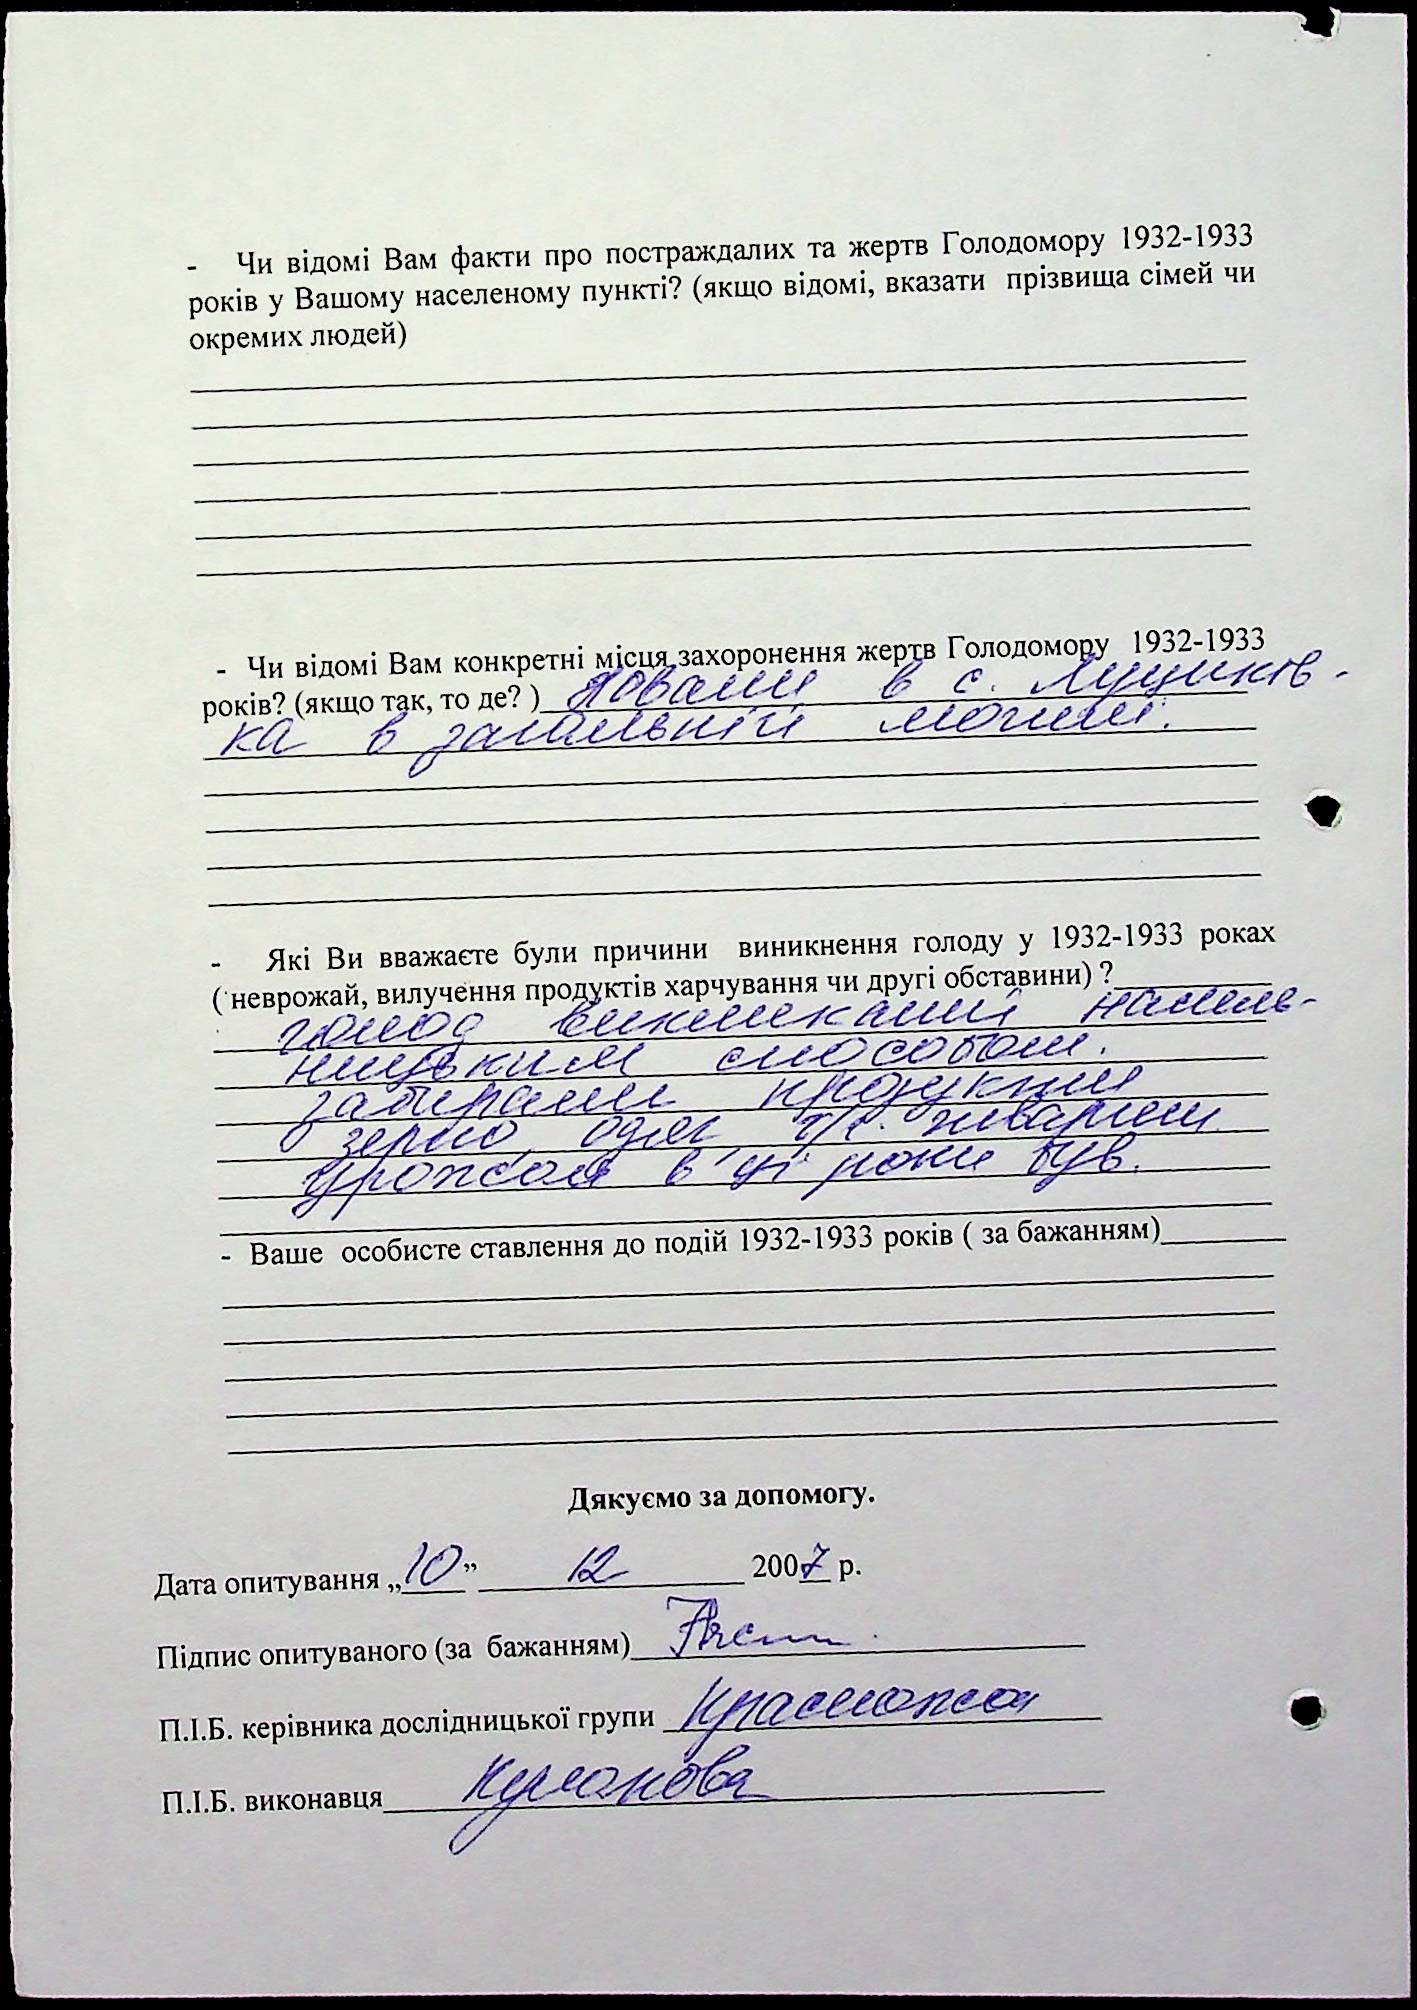 - Чи відомі Вам факти про постраждалих та жертв Голодомору 1932-1933
років у Вашому населеному пункті? (якщо відомі, вказати прізвища сімей чи
окремих людей)
- Чи відомі Вам конкретні місця захоронення жертв Голодомору 1932-1933
років? (якщо так, то де? ) ховали в с. Луциків-
ка в загальній могилі.
- Які Ви вважаєте були причини виникнення голоду у 1932-1933 роках
( неврожай, вилучення продуктів харчування чи другі обставини) ?
голод викликаний насиль-
ницьким способом.
забирали продукти
зерно, одяг т/с. тварини
урожай в ці роки був.
- Ваше особисте ставлення до подій 1932-1933 років ( за бажанням)
Дякуємо за допомогу.
Дата опитування „10” 12 2007 р.
Підпис опитуваного (за бажанням)
П.І.Б. керівника дослідницької групи
П.І.Б. виконавця